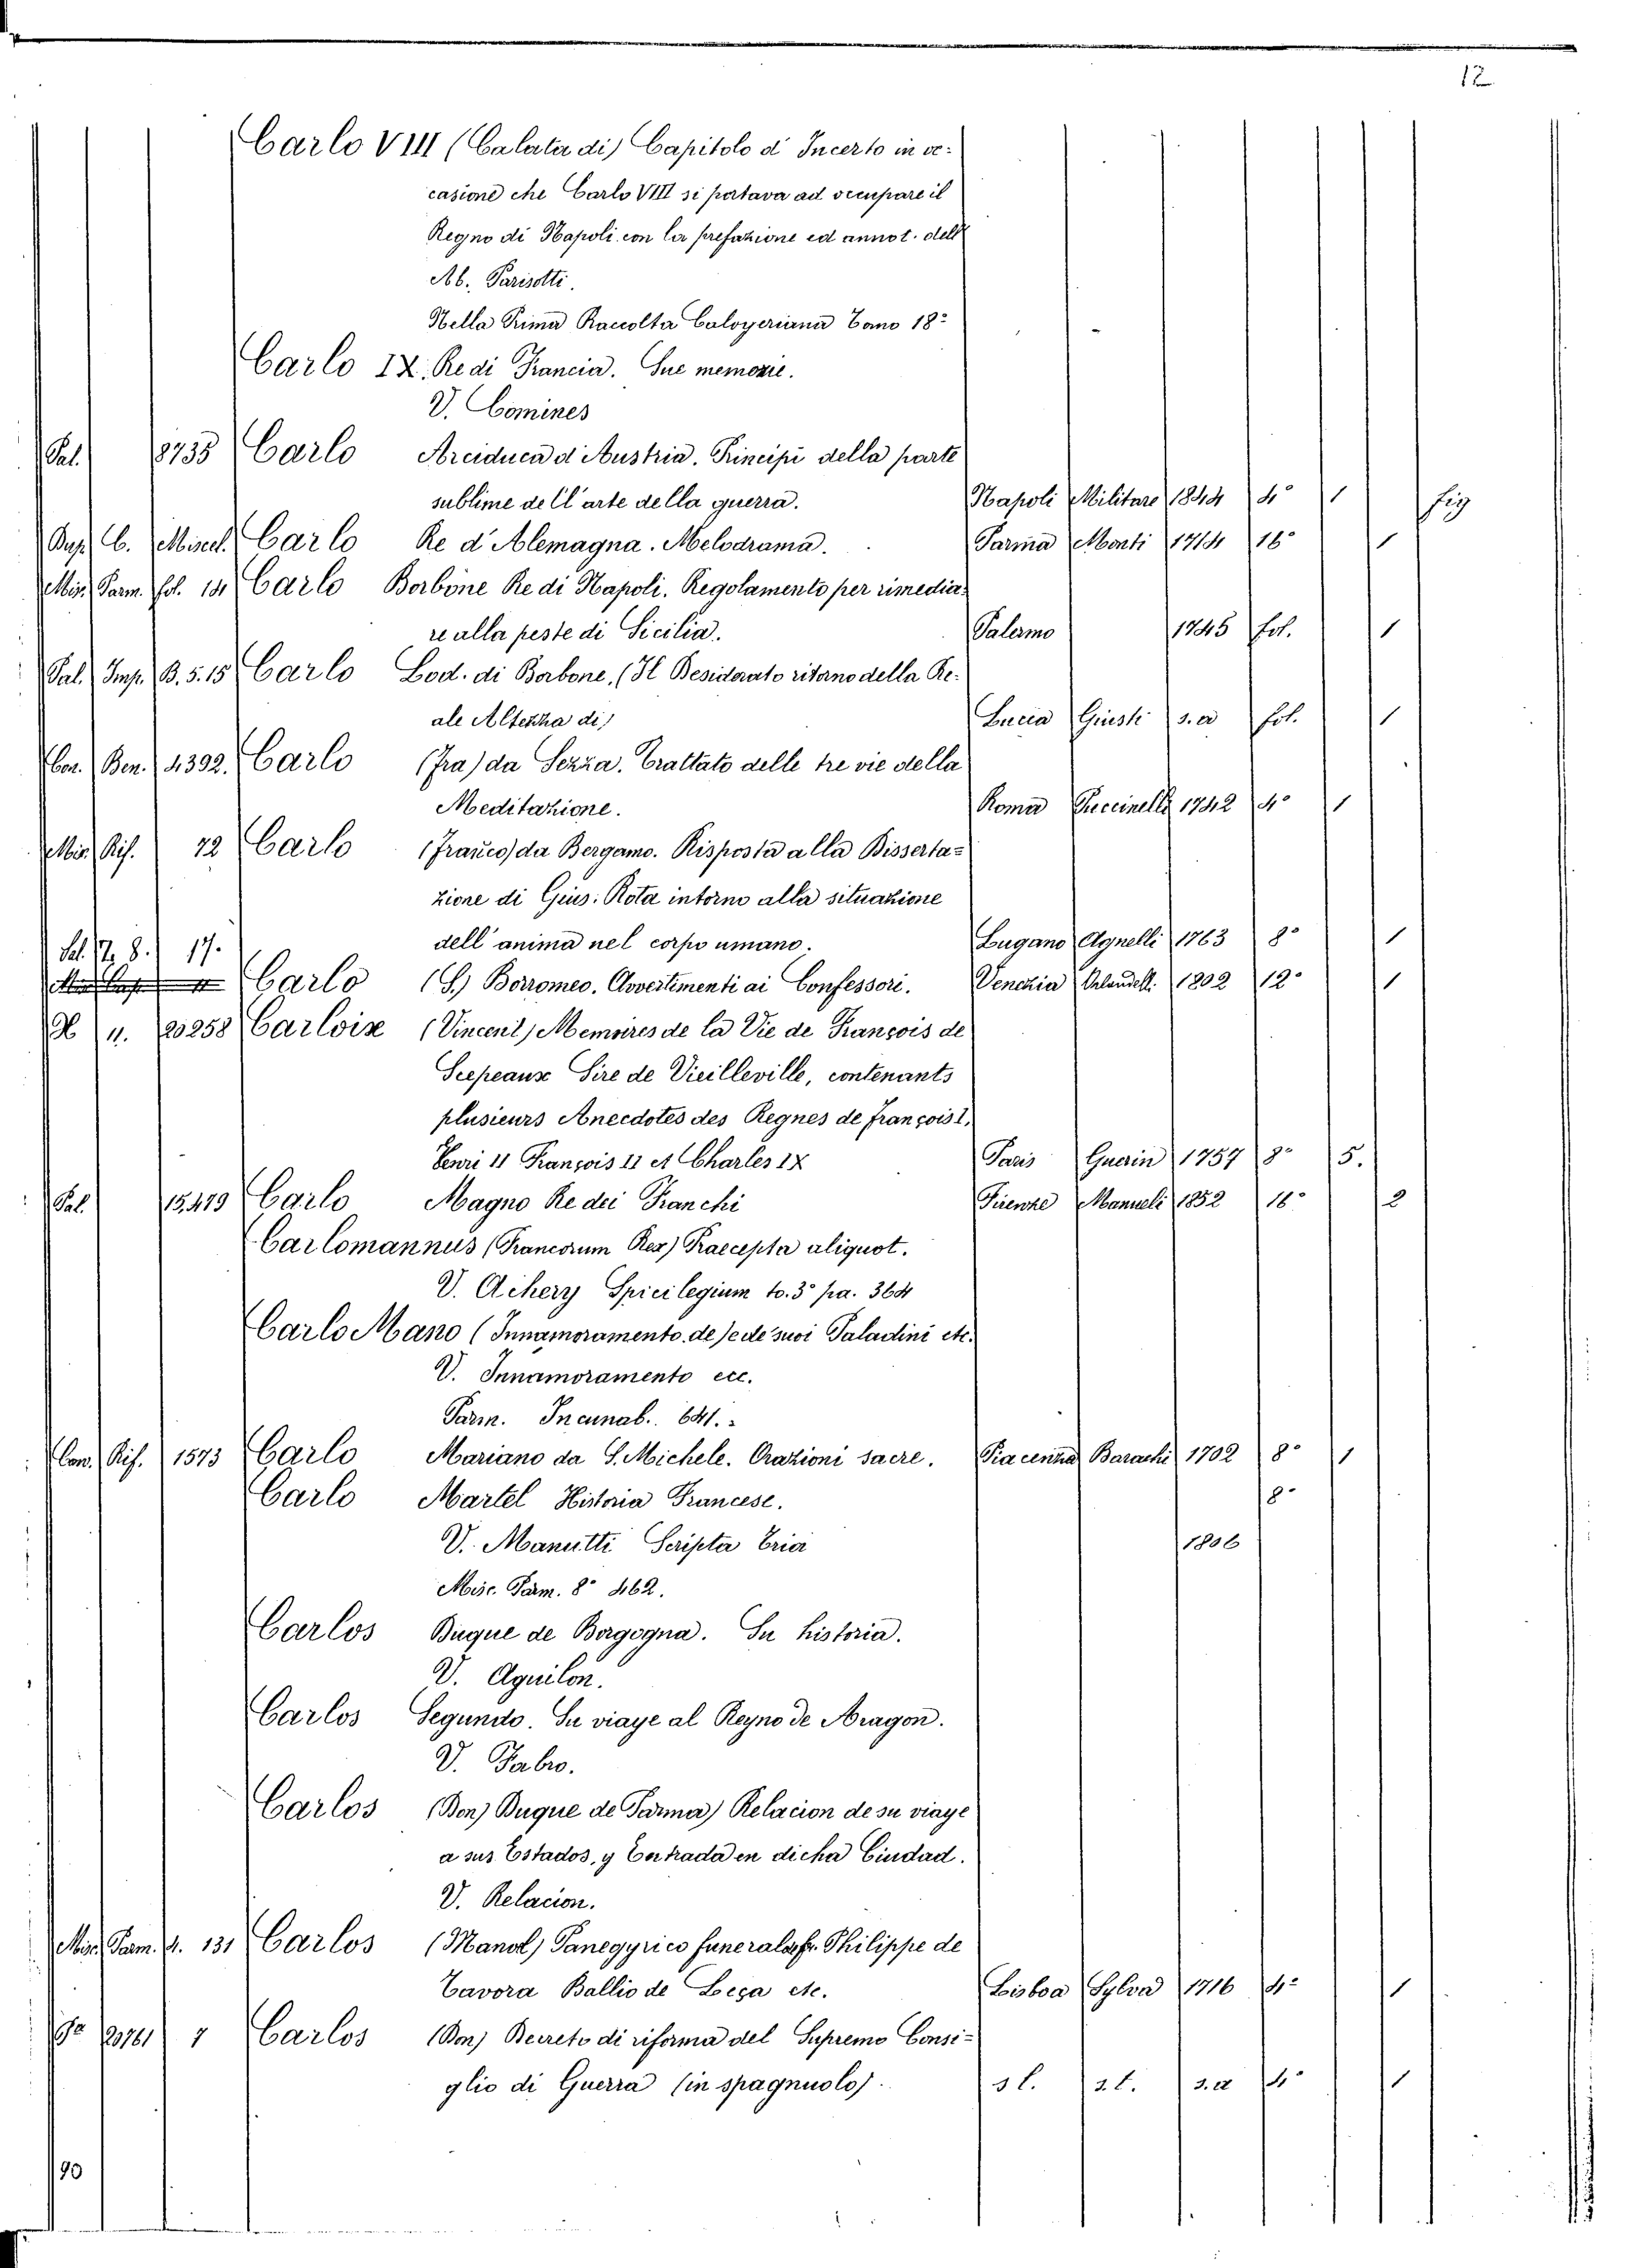 12
Carlo VIII (Calata di) Capitolo d' Incerto in oc-
casione che Carlo VIII si portava ad occupare il
Regno di Napoli con la prefazione ed annot. dell'
Ab. Parisotti.
Nella Prima Raccolta Calogeriana Tomo 18°
Carlo IX. Re di Francia. Sue memorie.
V. Comines
Pal. 8735 Carlo Arciduca d'Austria. Principi della parte
sublime dell'arte della guerra. Napoli Militare 1844 4° 1 fig
Dup. C. Miscel. Carlo Re d'Alemagna. Melodrama. Parma Monti 1714 16° 1
Mis. Parm. fol. 14 Carlo Borbone Re di Napoli. Regolamento per rimedia-
re alla peste di Sicilia. Palermo 1745 fol. 1
Pal. Imp. B. 5. 15 Carlo Lod. di Borbone. (Il Desiderato ritorno della Re-
ale Altezza di) Lucca Giusti s. a fol. 1
Con. Ben. 4392. Carlo (Fra) da Sezza. Trattato delle tre vie della
Meditazione. Roma Puccinelli 1742 4° 1
Mis. Rif. 72 Carlo (Franco) da Bergamo. Risposta alla Disserta=
zione di Gius: Rota intorno alla situazione
dell'anima nel corpo umano. Lugano Agnelli 1763 8° 1
Sal. 17. 8. 17.
Carlo (S.) Borromeo. Avvertimenti ai Confessori. Venezia Orlandell. 1802 12° 1
H 11. 20258 Carloix (Vincent) Memoires de la Vie de François de
Scepeaux Sire de Vieilleville, contenants
plusieurs Anecdotes des Regnes de François I,
Henri II François II et Charles IX Paris Guerin 1757 8° 5.
Pal. 15,419 Carlo Magno Re dei Franchi Firenze Manueli 1852 16° 2
Carlomannus (Francorum Rex) Praecepta aliquot.
V. Achery Spicilegium to. 3° pa. 364
Carlo Mano (Innamoramento de) e de' suoi Paladini etc.
V. Innamoramento ecc.
Parm. Incunab. 641.
Con. Rif. 1573 Carlo Mariano da S. Michele. Orazioni sacre. Piacenza Barachi 1702 8° 1
Carlo Martel Historia Francese. 8°
V. Manutti Scripta Tria 1806
Misc. Parm. 8° 462.
Carlos Duque de Borgogna. Su historia.
V. Aquilon.
Carlos Segundo. Su viaye al Reyno de Aragon.
V. Fabro.
Carlos (Don) Duque de Parma) Relacion de su viaye
a sus Estados, y Entrada en dicha Ciudad.
V. Relacion.
Mis. Parm. 4. 131 Carlos (Manol) Panegyrico funeral de fr. Philippe de
Tavora Ballio de Leça etc. Lisboa Sylva 1716 4° 1
20761 7 Carlos (Don) Decreto di riforma del Supremo Consi=
glio di Guerra (in spagnuolo). s l. s. t. s. a 4° 1
90